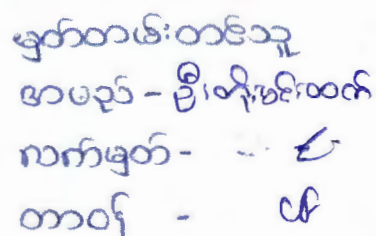 မှတ်တမ်းတင်သူ
အမည် - ဦးတိုးမင်းထက်
လက်မှတ် -
တာဝန် -